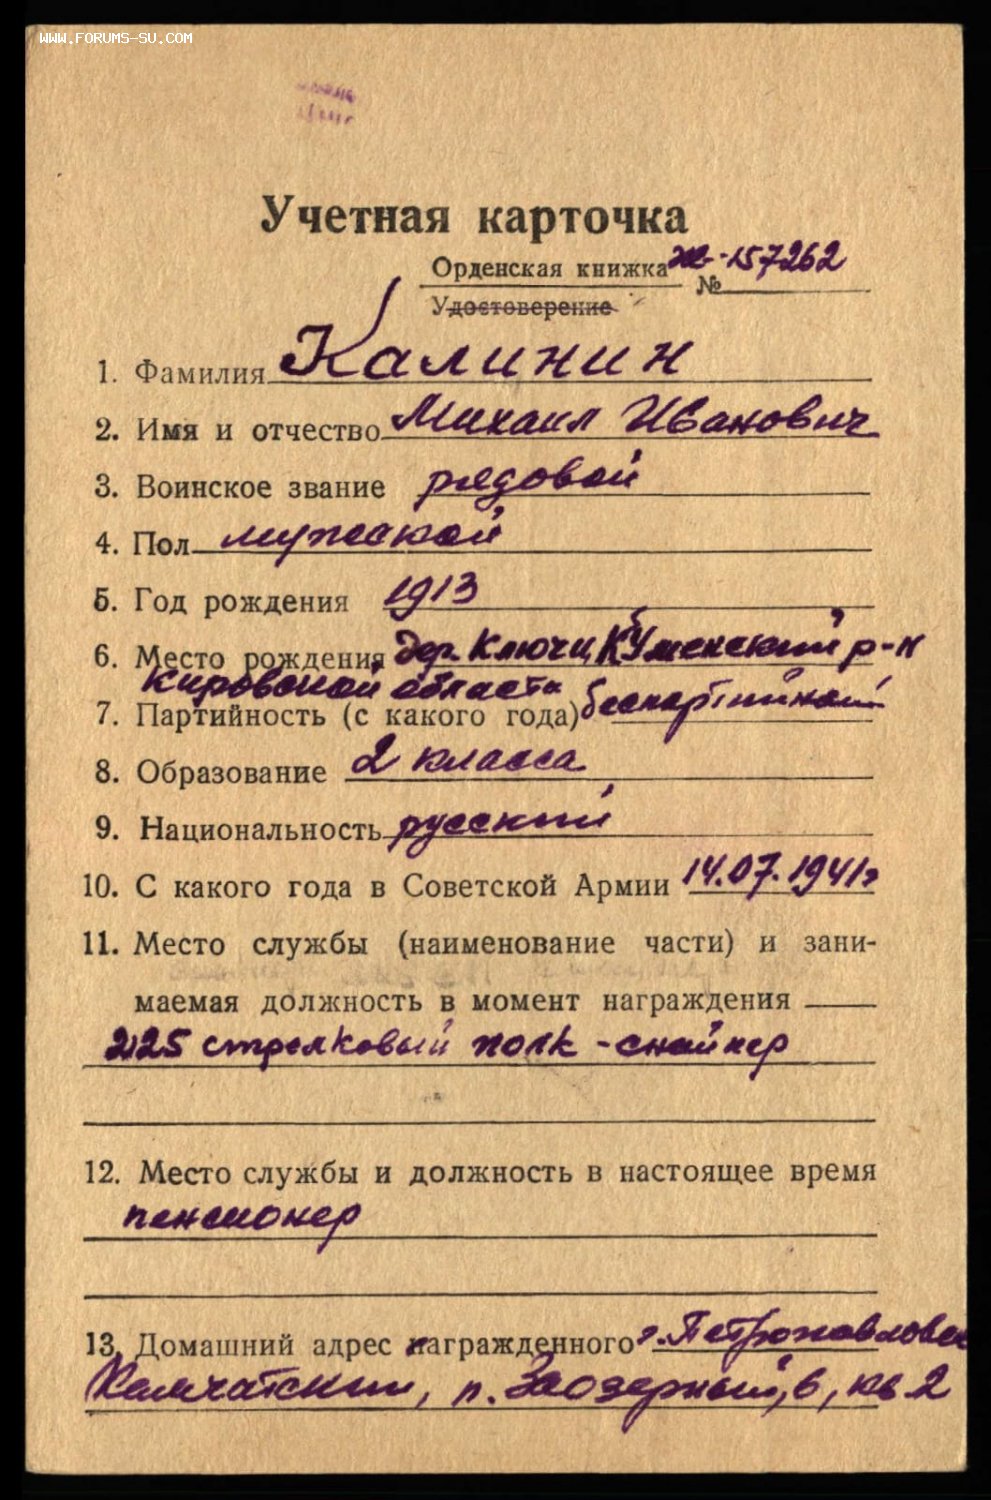 WWW.FORUMS-SU.COM
Учетная карточка
Орденская книжка № Ж-157262
Удостоверение
1. Фамилия Калинин
2. Имя и отчество Михаил Иванович
3. Воинское звание рядовой
4. Пол мужской
5. Год рождения 1913
6. Место рождения дер. Ключи, Куменский р-н
Кировской области
7. Партийность (с какого года) беспартийный
8. Образование 2 класса
9. Национальность русский
10. С какого года в Советской Армии 14.07.1941г
11. Место службы (наименование части) и зани-
маемая должность в момент награждения
2125 стрелковый полк - снайпер
12. Место службы и должность в настоящее время
пенсионер
13. Домашний адрес награжденного г. Петропавловск
Камчатский, п. Заозерный, 6, кв 2